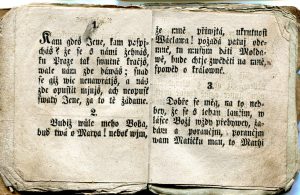 1.
Kam gdeš Jene, kam pospj-
cháš? že se s námi žehnáš,
ku Praze tak smutně kráčjš,
wale nám zde dáwáš; snáď
se giž wíc nenawratjš, a nás
zde opustit mjnjš, ach neopusť
swatý Jene, za to tě žádáme.
2.
Budiž wůle mého Boha,
buď twá o Marya! neboť wjm,
že mně přiwjtá, ukrutnost
Wáclawa! požádá patný ode-
mne, tu mrtwým dáti Molda-
wě, bude chtjt zwěděti na mně,
zpowěd o králowně.
3.
Dobře se měg, na to ned-
bey, že se s tebau laučjm, w
lásce Božj wždy přebywey, žá-
dám a poraučjm, poraučjm
wám Matičku mau, to Maryi